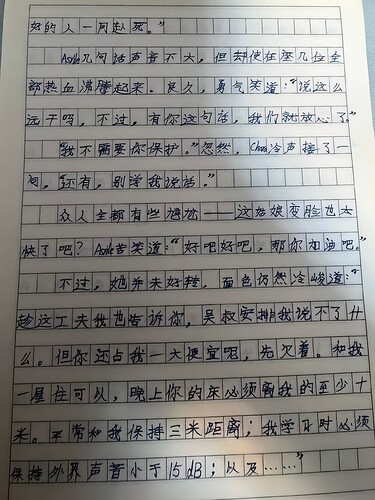 好的人一同赴死。”
Asile几句话声音不大，但却使在座几位全
部热血沸腾起来。良久，勇气笑道：“说这么
远干吗，不过，有你这句话，我们就放心了”
“我不需要你保护。”忽然，Chas冷声接了一
句，“还有，别学我说话。”
众人全都有些尴尬——这姑娘变脸也太
快了吧？Asile苦笑道：“好吧好吧，那你加油吧。”
不过，她并未好转，面色仍然冷峻道：
趁这工夫我也告诉你，吴叔安排我说不了什
么。但你还占我一大便宜呢，先欠着。和我
一屋住可以，晚上你的床必须离我的至少十
米。平常和我保持三米距离；我学习时必须
保持外界声音小于15dB；以及……”